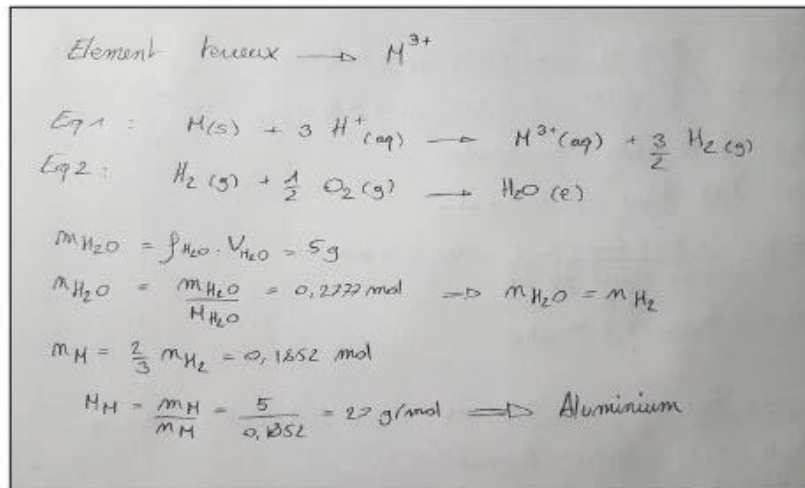 Element terreux → M³⁺
Eq 1 : M(s) + 3 H⁺(aq) → M³⁺(aq) + 3/2 H₂(g)
Eq 2 : H₂(g) + 1/2 O₂(g) → H₂O(l)
m_H₂O = ρ_H₂O . V_H₂O = 5 g
n_H₂O = m_H₂O / M_H₂O = 0,2777 mol ⇒ n_H₂O = n_H₂
n_M = 2/3 n_H₂ = 0,1852 mol
M_M = m_M / n_M = 5 / 0,1852 = 27 g/mol ⇒ Aluminium